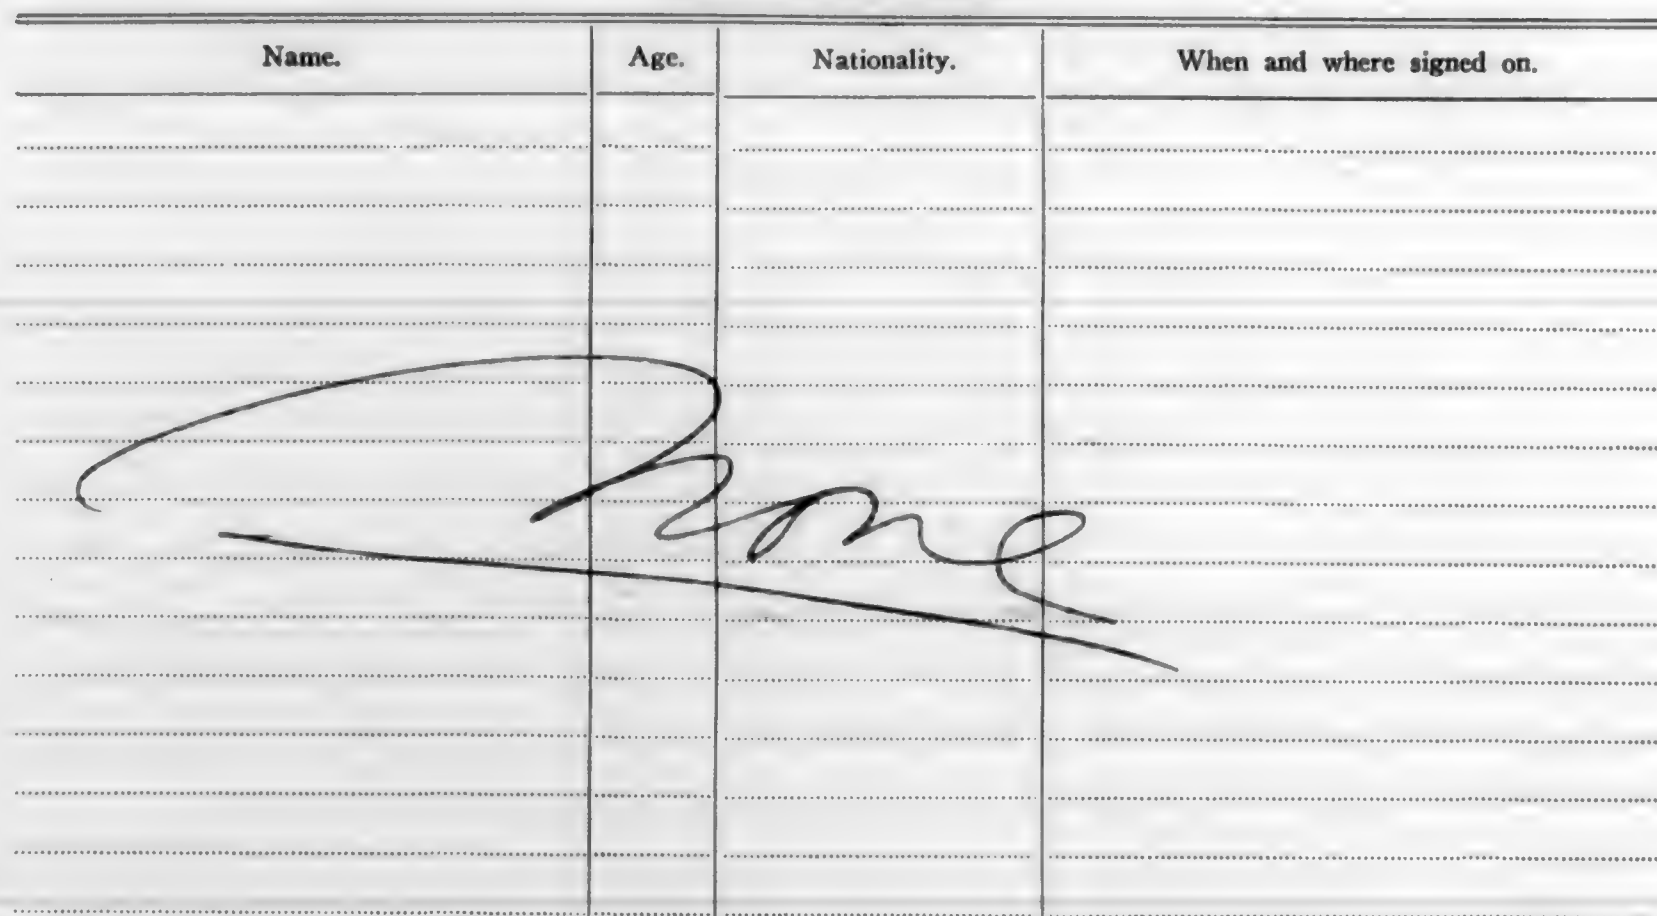 Name. Age. Nationality. When and where signed on.
None